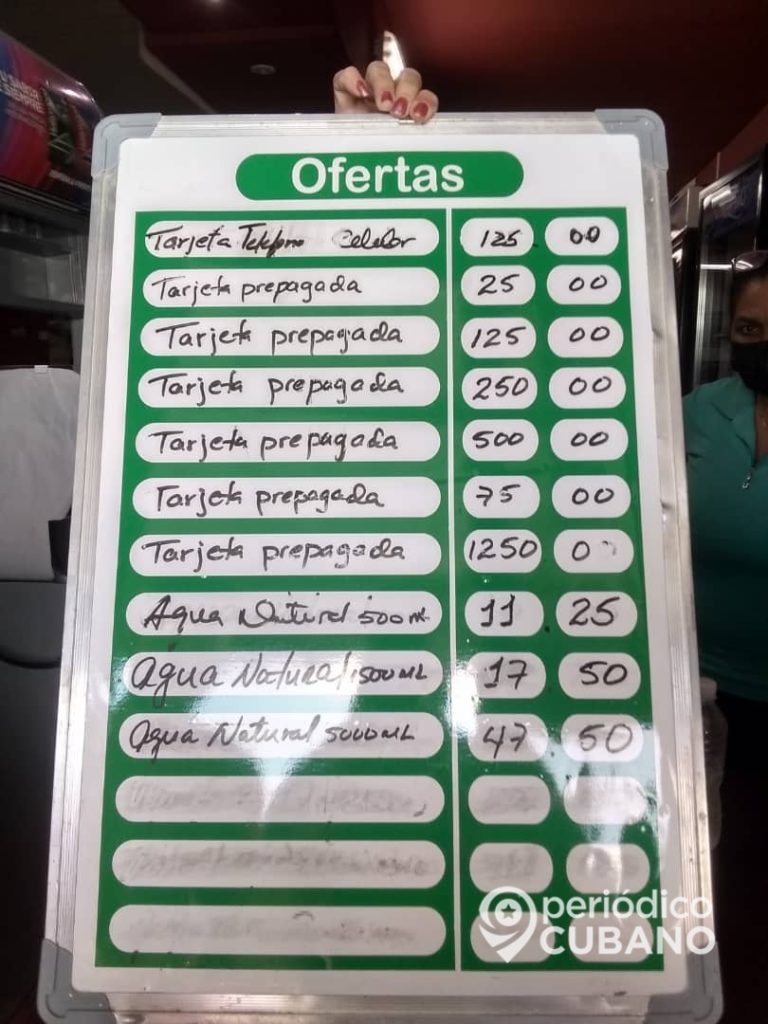 Ofertas
Tarjeta Telefono Celular 125 00
Tarjeta prepagada 25 00
Tarjeta prepagada 125 00
Tarjeta prepagada 250 00
Tarjeta prepagada 500 00
Tarjeta prepagada 75 00
Tarjeta prepagada 1250 0
Agua Natural 500 ML 11 25
Agua Natural 1500 ML 17 50
Agua Natural 5000 ML 47 50
periódico
CUBANO